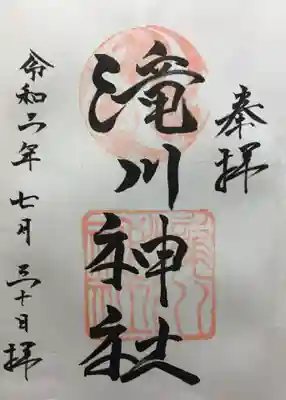 奉拝
滝川神社
令和二年七月三十日拝